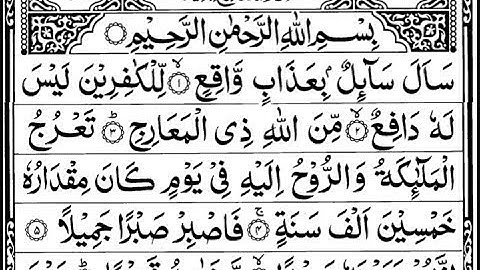 بِسْمِ اللهِ الرَّحْمٰنِ الرَّحِيْمِ
سَاَلَ سَآئِلٌۢ بِعَذَابٍ وَّاقِعٍ ۙ﴿۱﴾ لِّلْكٰفِرِيْنَ لَيْسَ
لَهٗ دَافِعٌ ۙ﴿۲﴾ مِّنَ اللهِ ذِى الْمَعَارِجِ ؕ﴿۳﴾ تَعْرُجُ
الْمَلٰٓئِكَةُ وَالرُّوْحُ اِلَيْهِ فِىْ يَوْمٍ كَانَ مِقْدَارُهٗ
خَمْسِيْنَ اَلْفَ سَنَةٍ ۚ﴿۴﴾ فَاصْبِرْ صَبْرًا جَمِيْلًا ﴿۵﴾